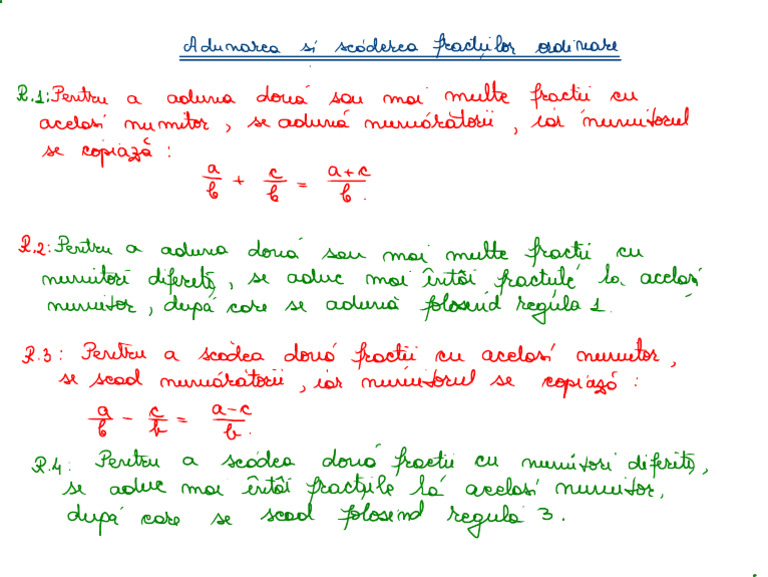 Adunarea si scăderea fracțiilor ordinare
R.1: Pentru a aduna două sau mai multe fractii cu
acelasi numitor, se adună numărătorii, iar numitorul
se copiază:
a/b + c/b = a+c/b.
R.2: Pentru a aduna două sau mai multe fractii cu
numitori diferiți, se aduc mai întâi fractiile la acelasi
numitor, după care se adună folosind regula 1.
R.3: Pentru a scădea două fractii cu acelasi numitor,
se scad numărătorii, iar numitorul se copiază:
a/b - c/b = a-c/b.
R.4: Pentru a scădea două fractii cu numitori diferiți,
se aduc mai întâi fracțiile la acelasi numitor,
după care se scad folosind regula 3.